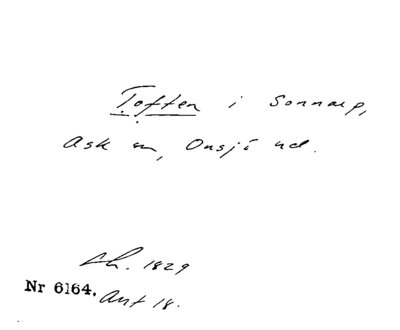 Toften i Sonnarp,
Ask sn, Onsjö hd.
Ch. 1829
Nr 6164. Avt 18.